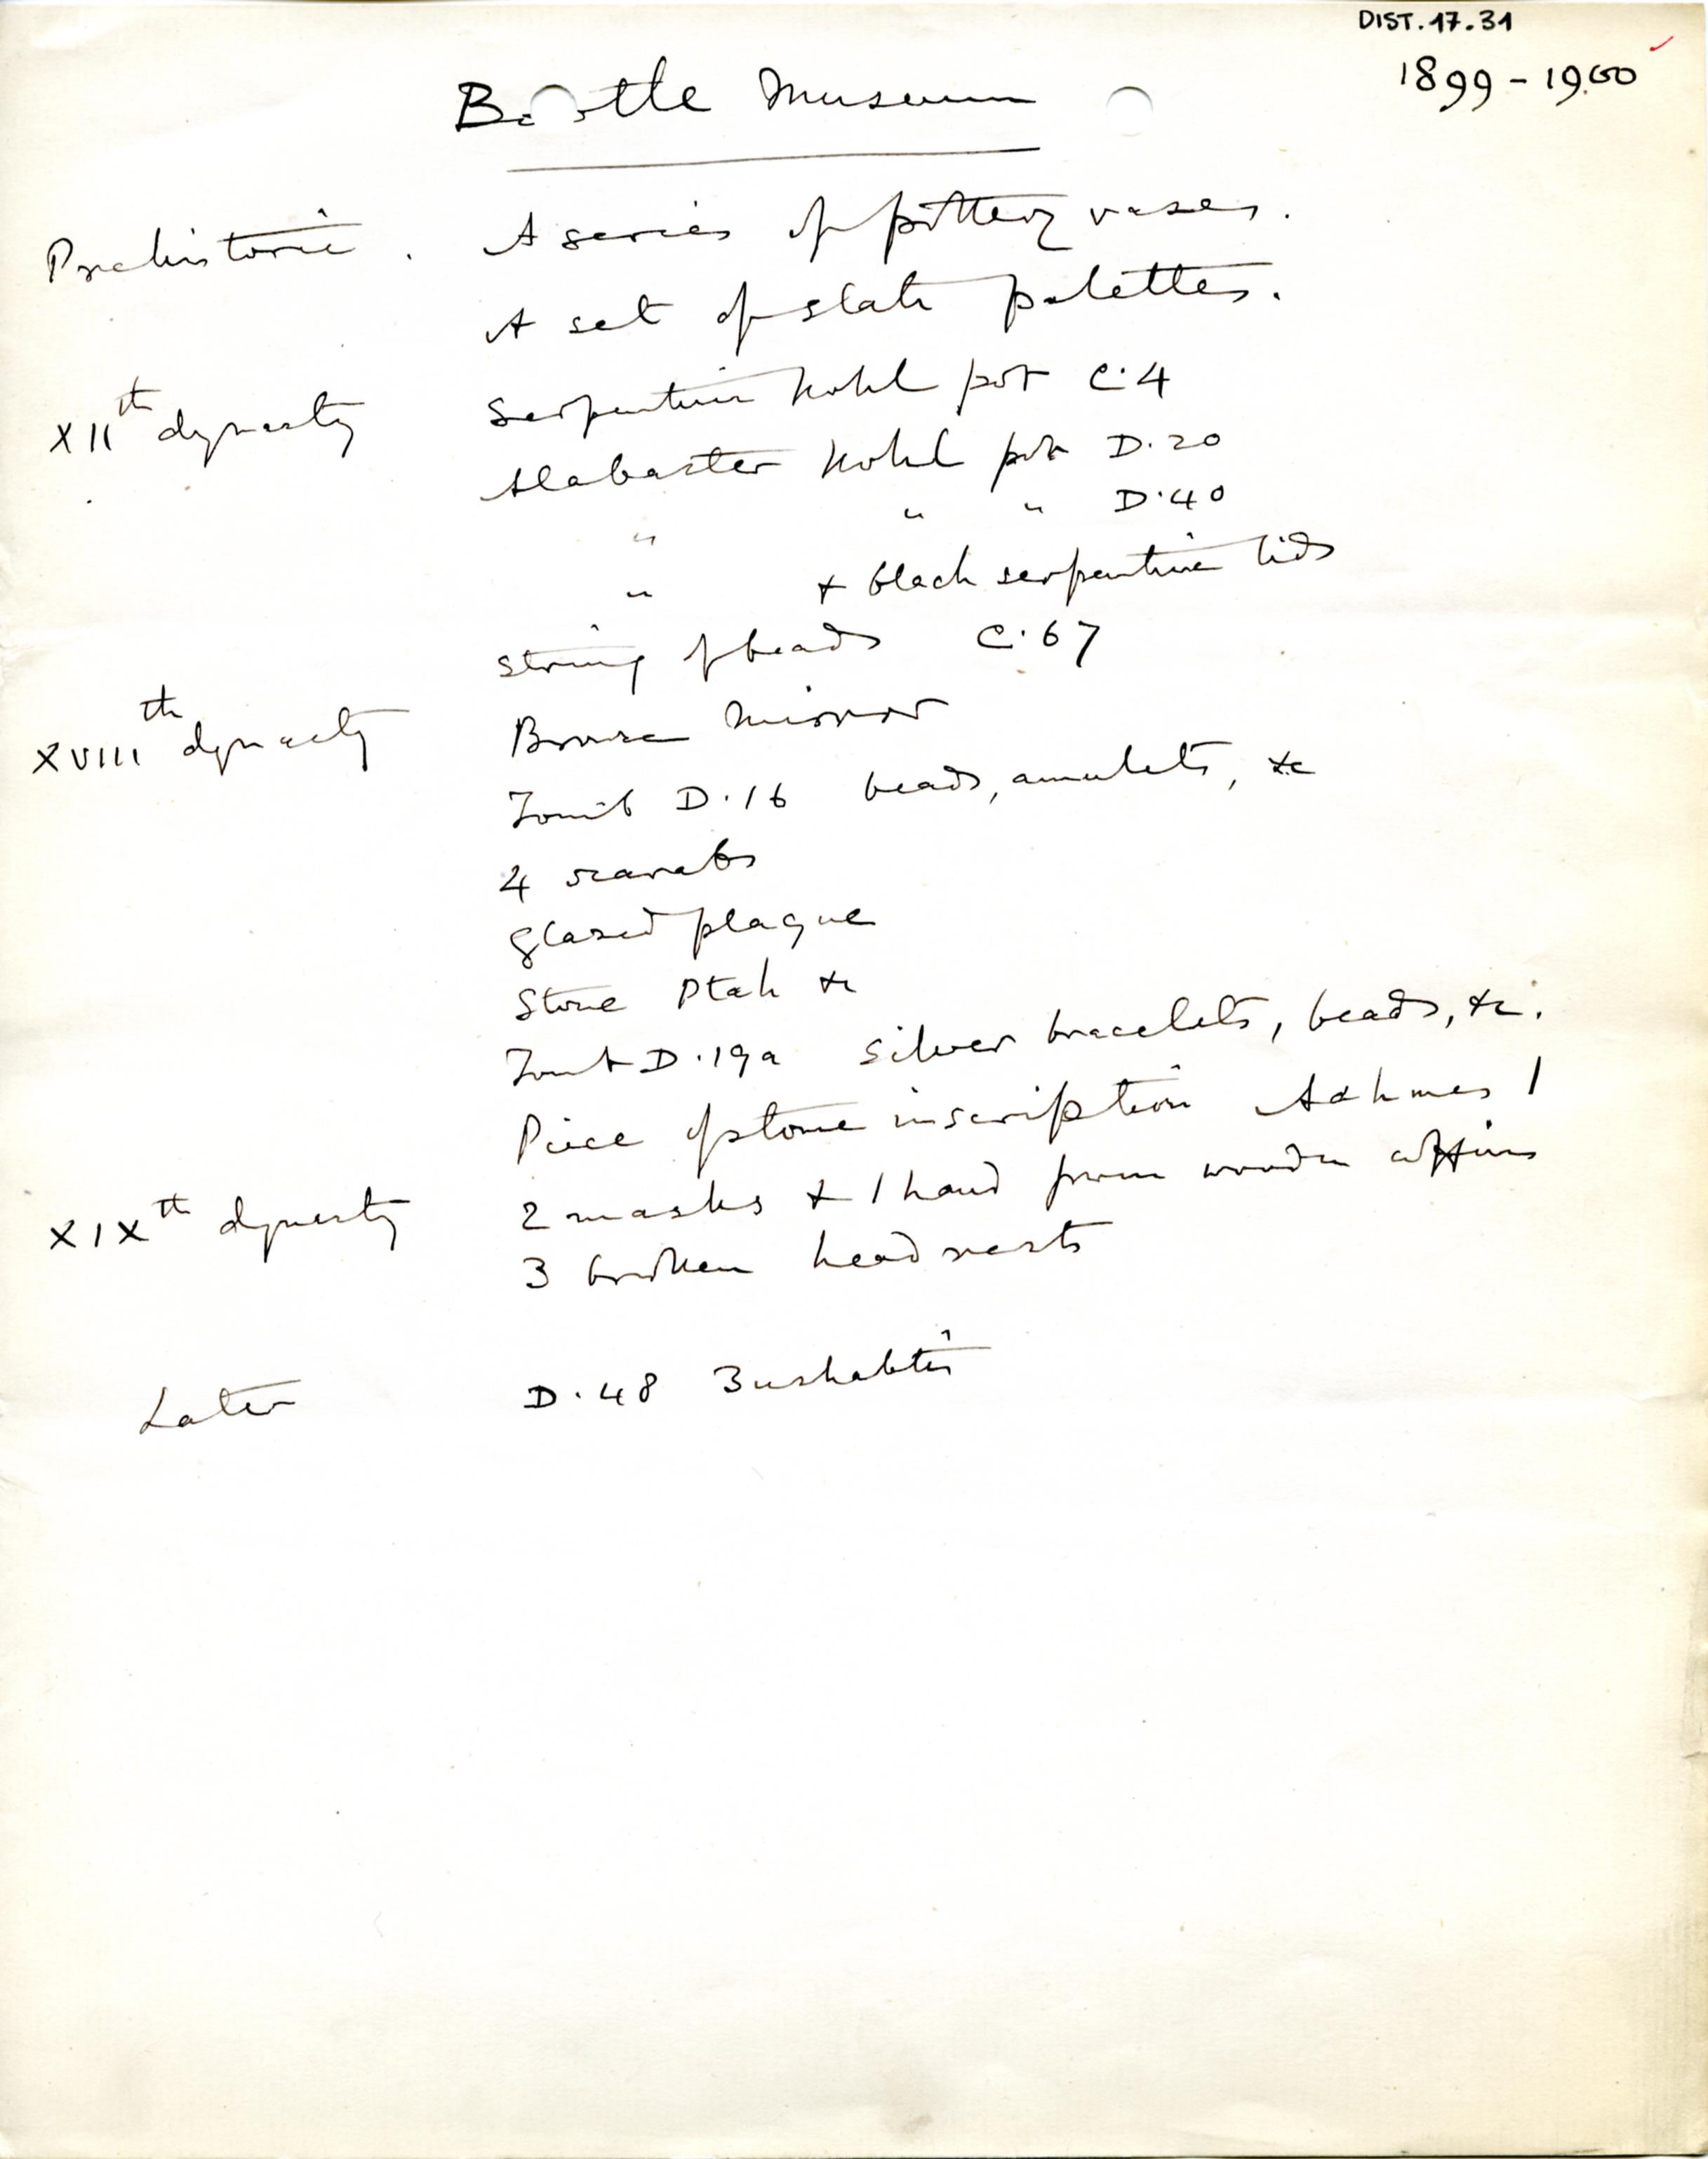 DIST.17.31
1899-1900
Bootle Museum
Prehistoric. A series of pottery vases.
A set of slate palettes.
XIIth dynasty Serpentine Kohl pot C.4
Alabaster Kohl pot D.20
" " " D.40
" + black serpentine lids
String of beads C.67
XVIIIth dynasty Bronze Mirror
Tomb D.16 beads, amulets, &c
4 scarabs
glazed plaque
Stone Ptah &c
Tomb D.19a silver bracelets, beads, &c.
Piece of stone inscription Aahmes I
XIXth dynasty 2 masks + 1 hand from wooden coffins
3 broken head rests
Later D.48 3 ushabtis